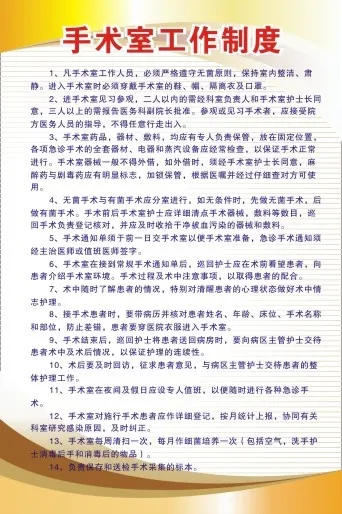 手术室工作制度
1、凡手术室工作人员，必须严格遵守无菌原则，保持室内整洁、肃
静。进入手术室时必须穿戴手术室的鞋、帽、隔离衣及口罩。
2、进手术室见习参观，二人以内的需经科室负责人和手术室护士长同
意，三人以上的需报告医务科副院长批准。参观或见习手术者，应接受院
方医务人员的指导，不得任意行走出入。
3、手术室药品，器材、敷料，均应有专人负责保管，放在固定位置，
各项急诊手术的全套器材、电器和蒸汽设备应经常检查，以保证手术正常
进行。手术室器械一般不得外借，如外借时，须经手术室护士长同意，麻
醉药与剧毒药应有明显标志，加锁保管，根据医嘱并经过仔细查对方可使
用。
4、无菌手术与有菌手术应分室进行，如无条件时，先做无菌手术，后
做有菌手术。手术前后手术室护士应详细清点手术器械，敷料等数目，巡
回手术负责登记核对，并应及时收拾干净被血污染的器械和敷料。
5、手术通知单须于前一日交手术室以便手术室准备，急诊手术通知须
经主治医师或值班医师签字。
6、手术室在接到常规手术通知单后，巡回护士应在术前看望患者，向
患者介绍手术室环境。手术过程及术中注意事项，以取得患者的配合。
7、术中随时了解患者的情况，特别对清醒患者的心理状态做好术中情
志护理。
8、接手术患者时，要带病历并核对患者姓名、年龄、床位、手术名称
和部位，防止差错，患者要穿医院衣服进入手术室。
9、手术结束后，巡回护士将患者送回病房时，要向病区主管护士交待
患者术中及术后情况，以保证护理的连续性。
10、术后要及时回访，征求患者意见，与病区主管护士交待患者的整
体护理工作。
11、手术室在夜间及假日应设专人值班，以便随时进行各种急诊手
术。
12、手术室对施行手术患者应作详细登记，按月统计上报，协同有关
科室研究感染原因，及时纠正。
13、手术室每周清扫一次，每月作细菌培养一次（包括空气，洗手护
士消毒后手和消毒后的物品）。
14、负责保存和送检手术采集的标本。